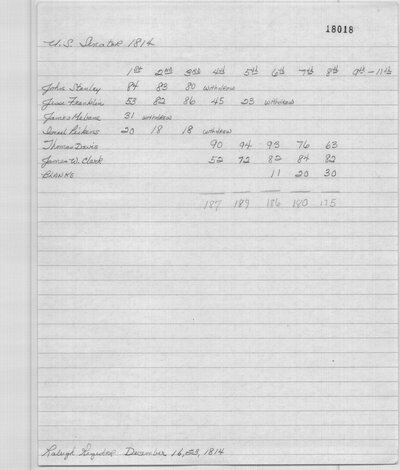 18018
U.S. Senator 1814
1st 2nd 3rd 4th 5th 6th 7th 8th 9th-11th
John Stanley 84 83 80 withdrew
Jesse Franklin 53 82 86 45 23 withdrew
James Mebane 31 withdrew
Israel Pickens 20 18 18 withdrew
Thomas Davis 90 94 93 76 63
James W. Clark 52 72 82 84 82
BLANKS 11 20 30
187 189 186 180 175
Raleigh Register December 16, 23, 1814